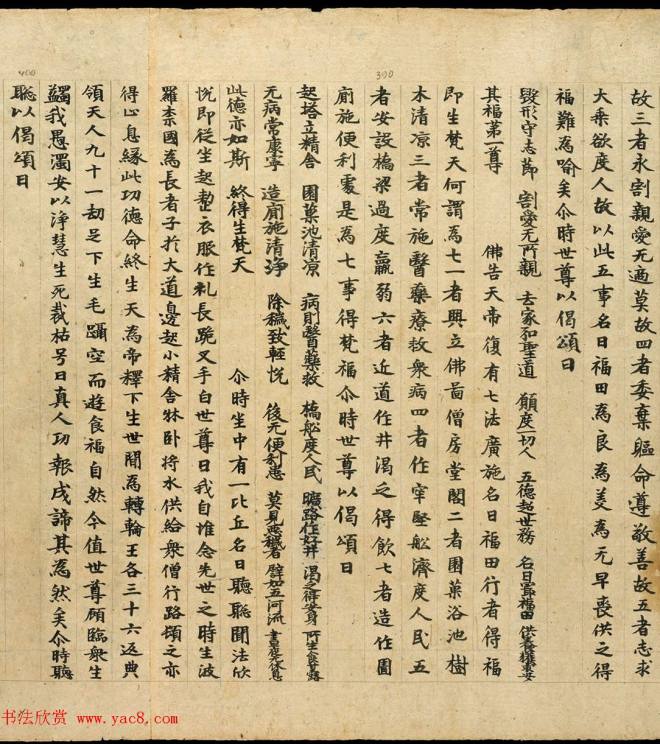 400
300
故三者永割親愛无適莫故四者委棄軀命遵敬善故五者志求
大乘欲度人故以此五事名曰福田為良為美為无早喪供之得
福難為喻矣尒時世尊以偈頌曰
毀形守志節 割愛无所親 去家和聖道 願度一切人 五德超世務 名曰福田 供養獲安
其福第一尊 佛告天帝復有七法廣施名曰福田行者得福
即生梵天何謂為七一者興立佛啚僧房堂閣二者園菓浴池樹
木清凉三者常施醫藥療救衆病四者作牢堅舩濟度人民五
者安設橋梁過度羸弱六者近道作井渴乏得飲七者造作圊
廁施便利處是為七事得梵福尒時世尊以偈頌曰
起塔立精舍 園菓池清凉 病則醫藥救 橋舩度人民 曠路作好井 渴乏得安身 所生食甘露
无病常康寧 造廁施清淨 除穢致輕悅 後无便利患 莫見惡穢者 譬如五河流 晝夜无休息
此德亦如斯 終得生梵天 尒時坐中有一比丘名曰聽聰聞法欣
悅即従生起整衣服作礼長跪叉手白世尊曰我自惟念先世之時生波
羅柰國為長者子於大道邊起小精舍牀卧將水供給衆僧行路頓乏亦
得止息緣此功德命終生天為帝釋下生世間為轉輪王各三十六返典
領天人九十一劫足下生毛躡空而遊食福自然今值世尊顧臨衆生
蠲我愚濁安以淨慧生死栽枯号曰真人功報成諦其為然矣尒時聽
聰以偈頌曰
书法欣赏 www.yac8.com